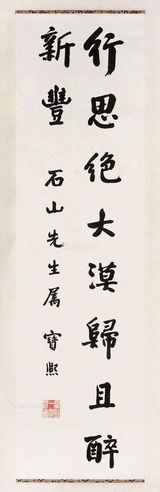 行思绝大漠歸且醉
新豐
石山先生属 寶熙